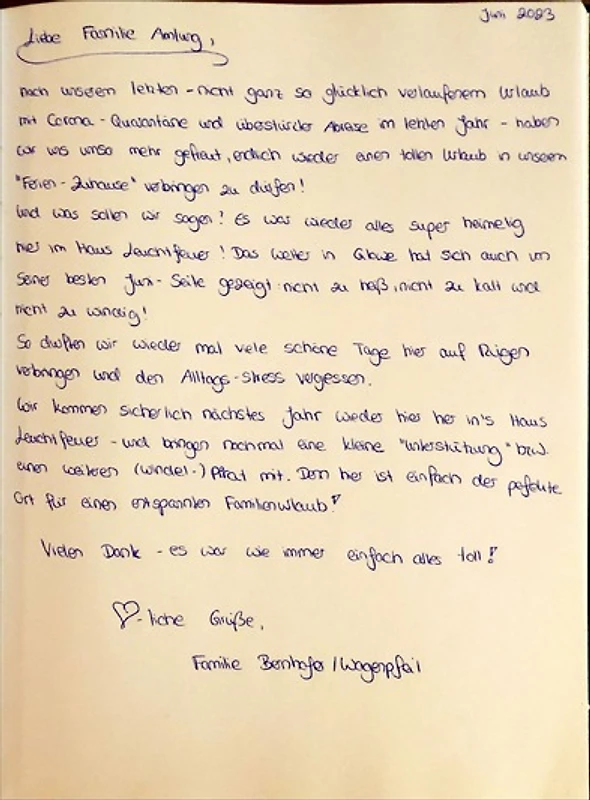 Juni 2023
Liebe Familie Amlung,
nach unserem letzten - nicht ganz so glücklich verlaufenem Urlaub
mit Corona - Quarantäne und überstürzter Abreise im letzten Jahr - haben
wir uns umso mehr gefreut, endlich wieder einen tollen Urlaub in unserem
"Ferien - Zuhause" verbringen zu dürfen!
Und was sollen wir sagen! Es war wieder alles super heimelig
hier im Haus Leuchtfeuer! Das Wetter in Glowe hat sich auch von
seiner besten Juni - Seite gezeigt: nicht zu heiß, nicht zu kalt und
nicht zu windig!
So durften wir wieder mal viele schöne Tage hier auf Rügen
verbringen und den Alltags - stress vergessen.
Wir kommen sicherlich nächstes Jahr wieder hier her in's Haus
Leuchtfeuer - und bringen nochmal eine kleine "Unterstützung" bzw.
einen weiteren (Windel-) Pirat mit. Denn hier ist einfach der perfekte
Ort für einen entspannten Familienurlaub!
Vielen Dank - es war wie immer einfach alles toll!
♡-liche Grüße,
Familie Bernhofer / Wagenpfeil